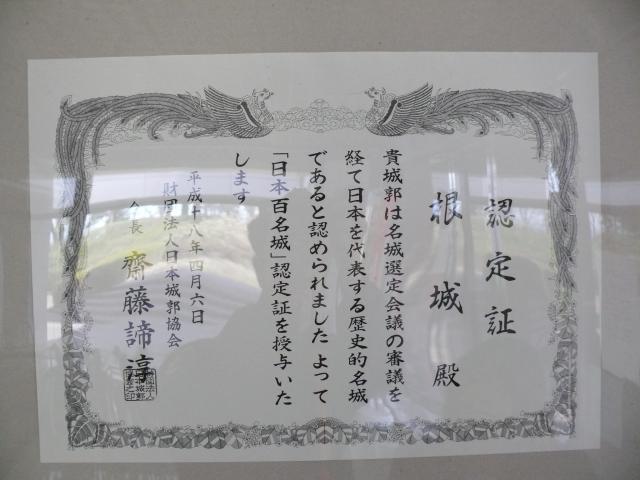 認定証
根城殿
貴城郭は名城選定会議の審議を
経て日本を代表する歴史的名城
であると認められました よって
「日本百名城」認定証を授与いた
します
平成十八年四月六日
財団法人日本城郭協会
会長 齋藤諦淳